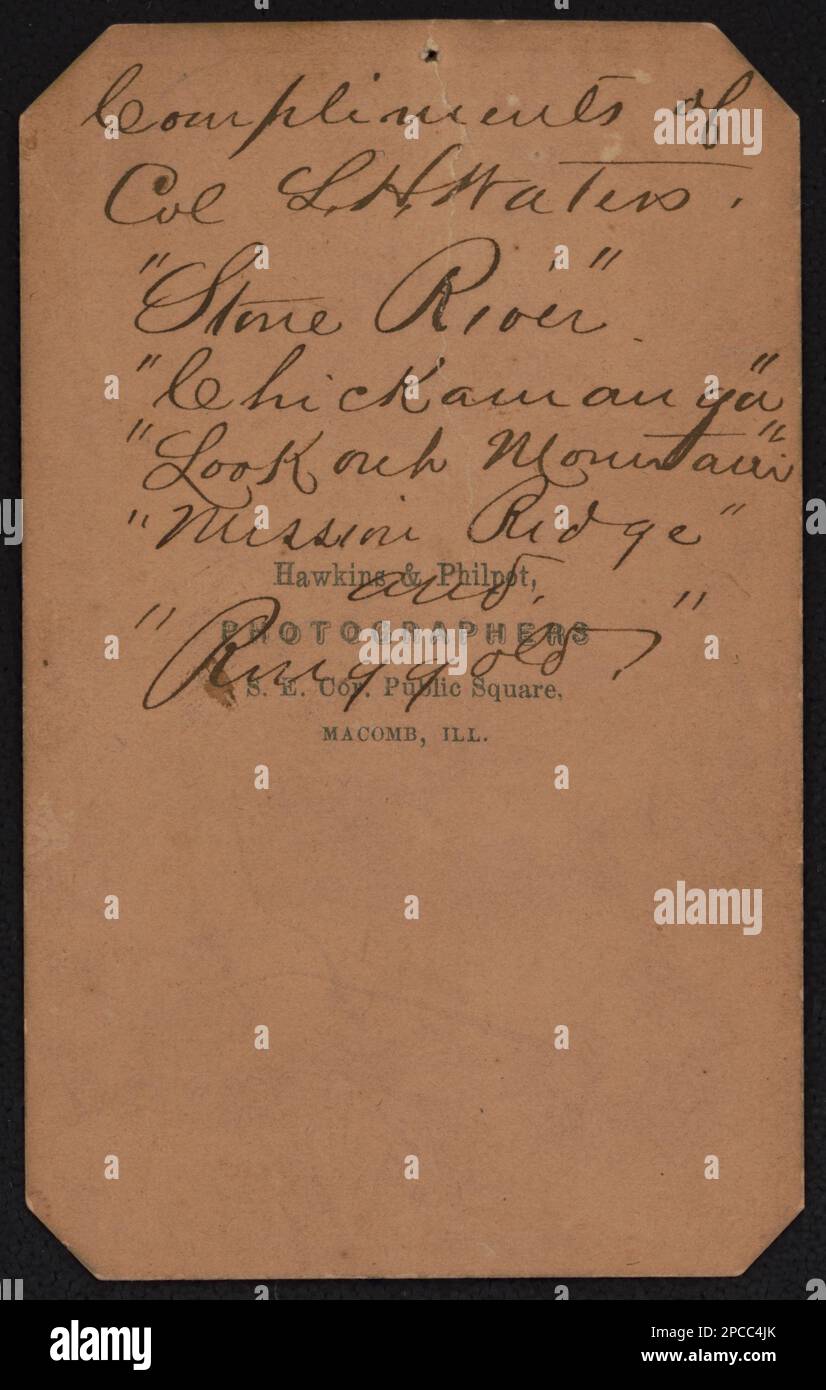 Compliments of
Col L. H. Waters.
"Stone River"
"Chickamauga"
"Lookouh Mountain"
"Mission Ridge"
Hawkins & Philpot,
and
PHOTOGRAPHERS
"Ringgold."
S. E. Cor. Public Square,
MACOMB, ILL.
alamy
a
alamy
Image ID: 2PCC4JK
www.alamy.com